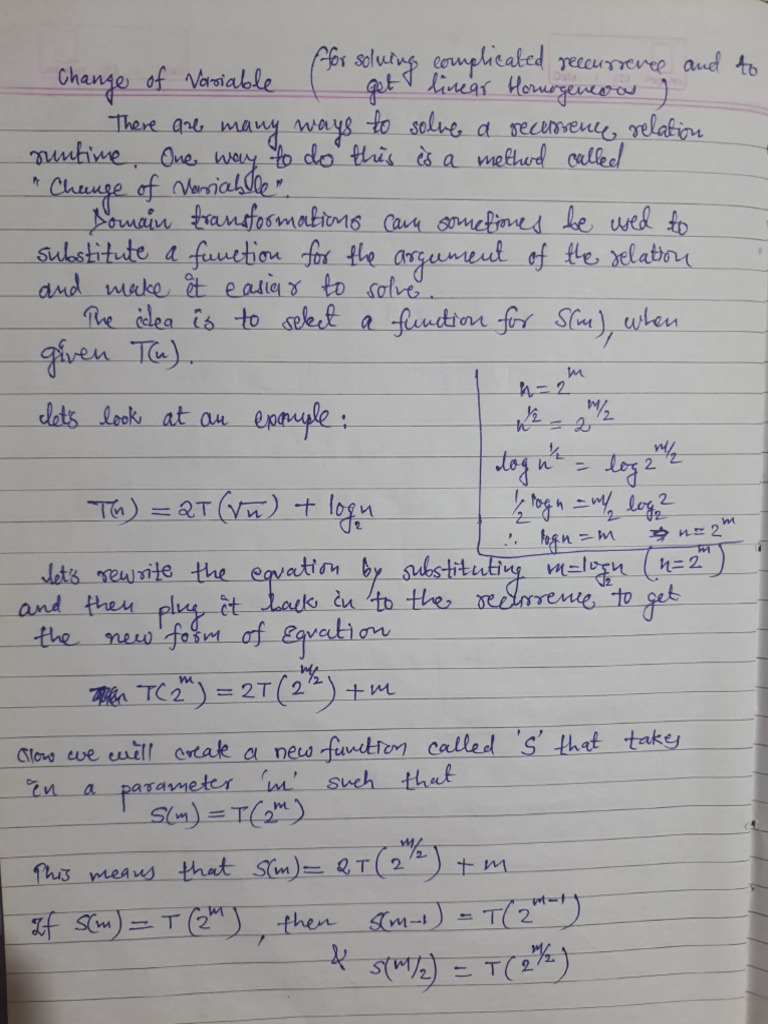 Change of Variable (for solving complicated reccurrence and to
get linear Homogeneous)
There are many ways to solve a recurrence relation
runtime. One way to do this is a method called
"Change of Variable".
Domain transformations can sometimes be used to
substitute a function for the argument of the relation
and make it easier to solve.
The idea is to select a function for S(m), when
given T(n).
Let's look at an example:
T(n) = 2T(√n) + log₂n
n = 2^m
n^1/2 = 2^m/2
log n^1/2 = log 2^m/2
1/2 log n = m/2 log₂2
∴ log n = m ⇒ n = 2^m
Let's rewrite the equation by substituting m = log₂n (n = 2^m)
and then plug it back in to the recurrence to get
the new form of Equation
T(2^m) = 2T(2^m/2) + m
Now we will create a new function called 'S' that takes
in a parameter 'm' such that
S(m) = T(2^m)
This means that S(m) = 2T(2^m/2) + m
If S(m) = T(2^m), then S(m-1) = T(2^m-1)
& S(m/2) = T(2^m/2)